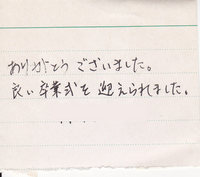 ありがとうございました。
良い卒業式を迎えられました。
....